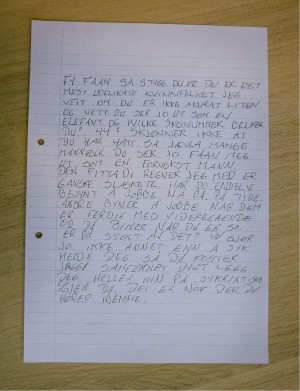 FY FAAN SÅ STYGG DU ER DU ER DET
MEST UDELIKATE KVINNFOLKET JEG
VEIT OM DU ER IKKE AKURAT LITEN
OG NETT DU SER JO UT SOM EN
ELEFANT OG HVILKE SKONUMMER BRUKER
DU? 44? SKJØNNER IKKE AT
DU HAR HATT SÅ JÆVLA MANGE
MANNFOLK DU SER JO FAAN MEG
UT SOM EN FORVOKST MANN
DEN FITTA DI REGNER JEG MED ER
GANSKE SLASKETE. HAR DU ENDELIG
BEGYNT Å JOBBE NÅ DA. PÅ TIDE
ANDRE BYNER Å JOBBE NÅR DEM
ER FERDIG MED VIDEREGÅENDE
OG DU BYNER NÅR DU ER 30.
ER DU STOLT AV DET? DU GJØR
JO IKKE ANNET ENN Å SYK
MELDE DEG SÅ DU KOSTER
SAMFUNNET DYRT LEGG
DEG HELLER INN PÅ SYKIATRISK
IGJEN DA. DET ER NOK DER DU
HØRER HJEMME.